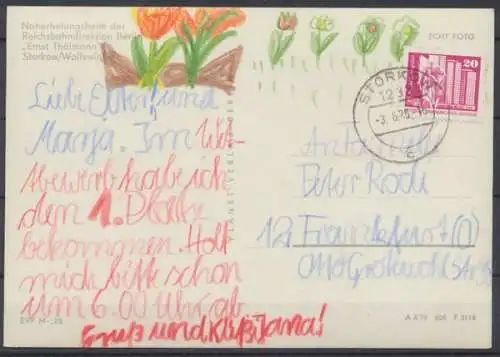 Naherholungsheim der
Reichsbahndirektion Berlin
„Ernst Thälmann"
Storkow/Wolfswinkel
ECHT FOTO
STORKOW
1232
-3. 6.75
c
20
Liebe
und
Manja. Im Wet-
tbewerb habe ich
den 1. Platz
bekommen. Holt
mich bitte schon
um 6.00 Uhr ab
Gruß und Kuß Jana!
PLANET-VERLAG BERLIN
An Familie
Peter Rode
121 Frankfurt (O)
Otto Grotewohl Str.
EVP M -,25